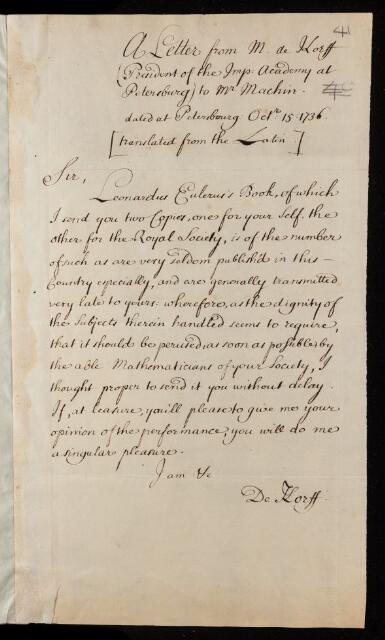 41
A Letter from M. de Korff
(President of the Imp. Academy at
Petersburg) to Mr. Machin.
dated at Petersbourg Octr. 15. 1736.
[translated from the Latin.]
Sir,
Leonardus Eulerus's Book, of which
I send you two Copies, one for your self, the
other for the Royal Society, is of the number
of such as are very seldom publish'd in this
Country especially, and are generally transmitted
very late to yours: wherefore, as the dignity of
the Subjects therein handled seems to require,
that it should be perused as soon as possible by
the able Mathematicians of your Society, I
thought proper to send it you without delay.
If, at leasure, you'll please to give me your
opinion of the performance, you will do me
a singular pleasure.
I am &c
De Korff.